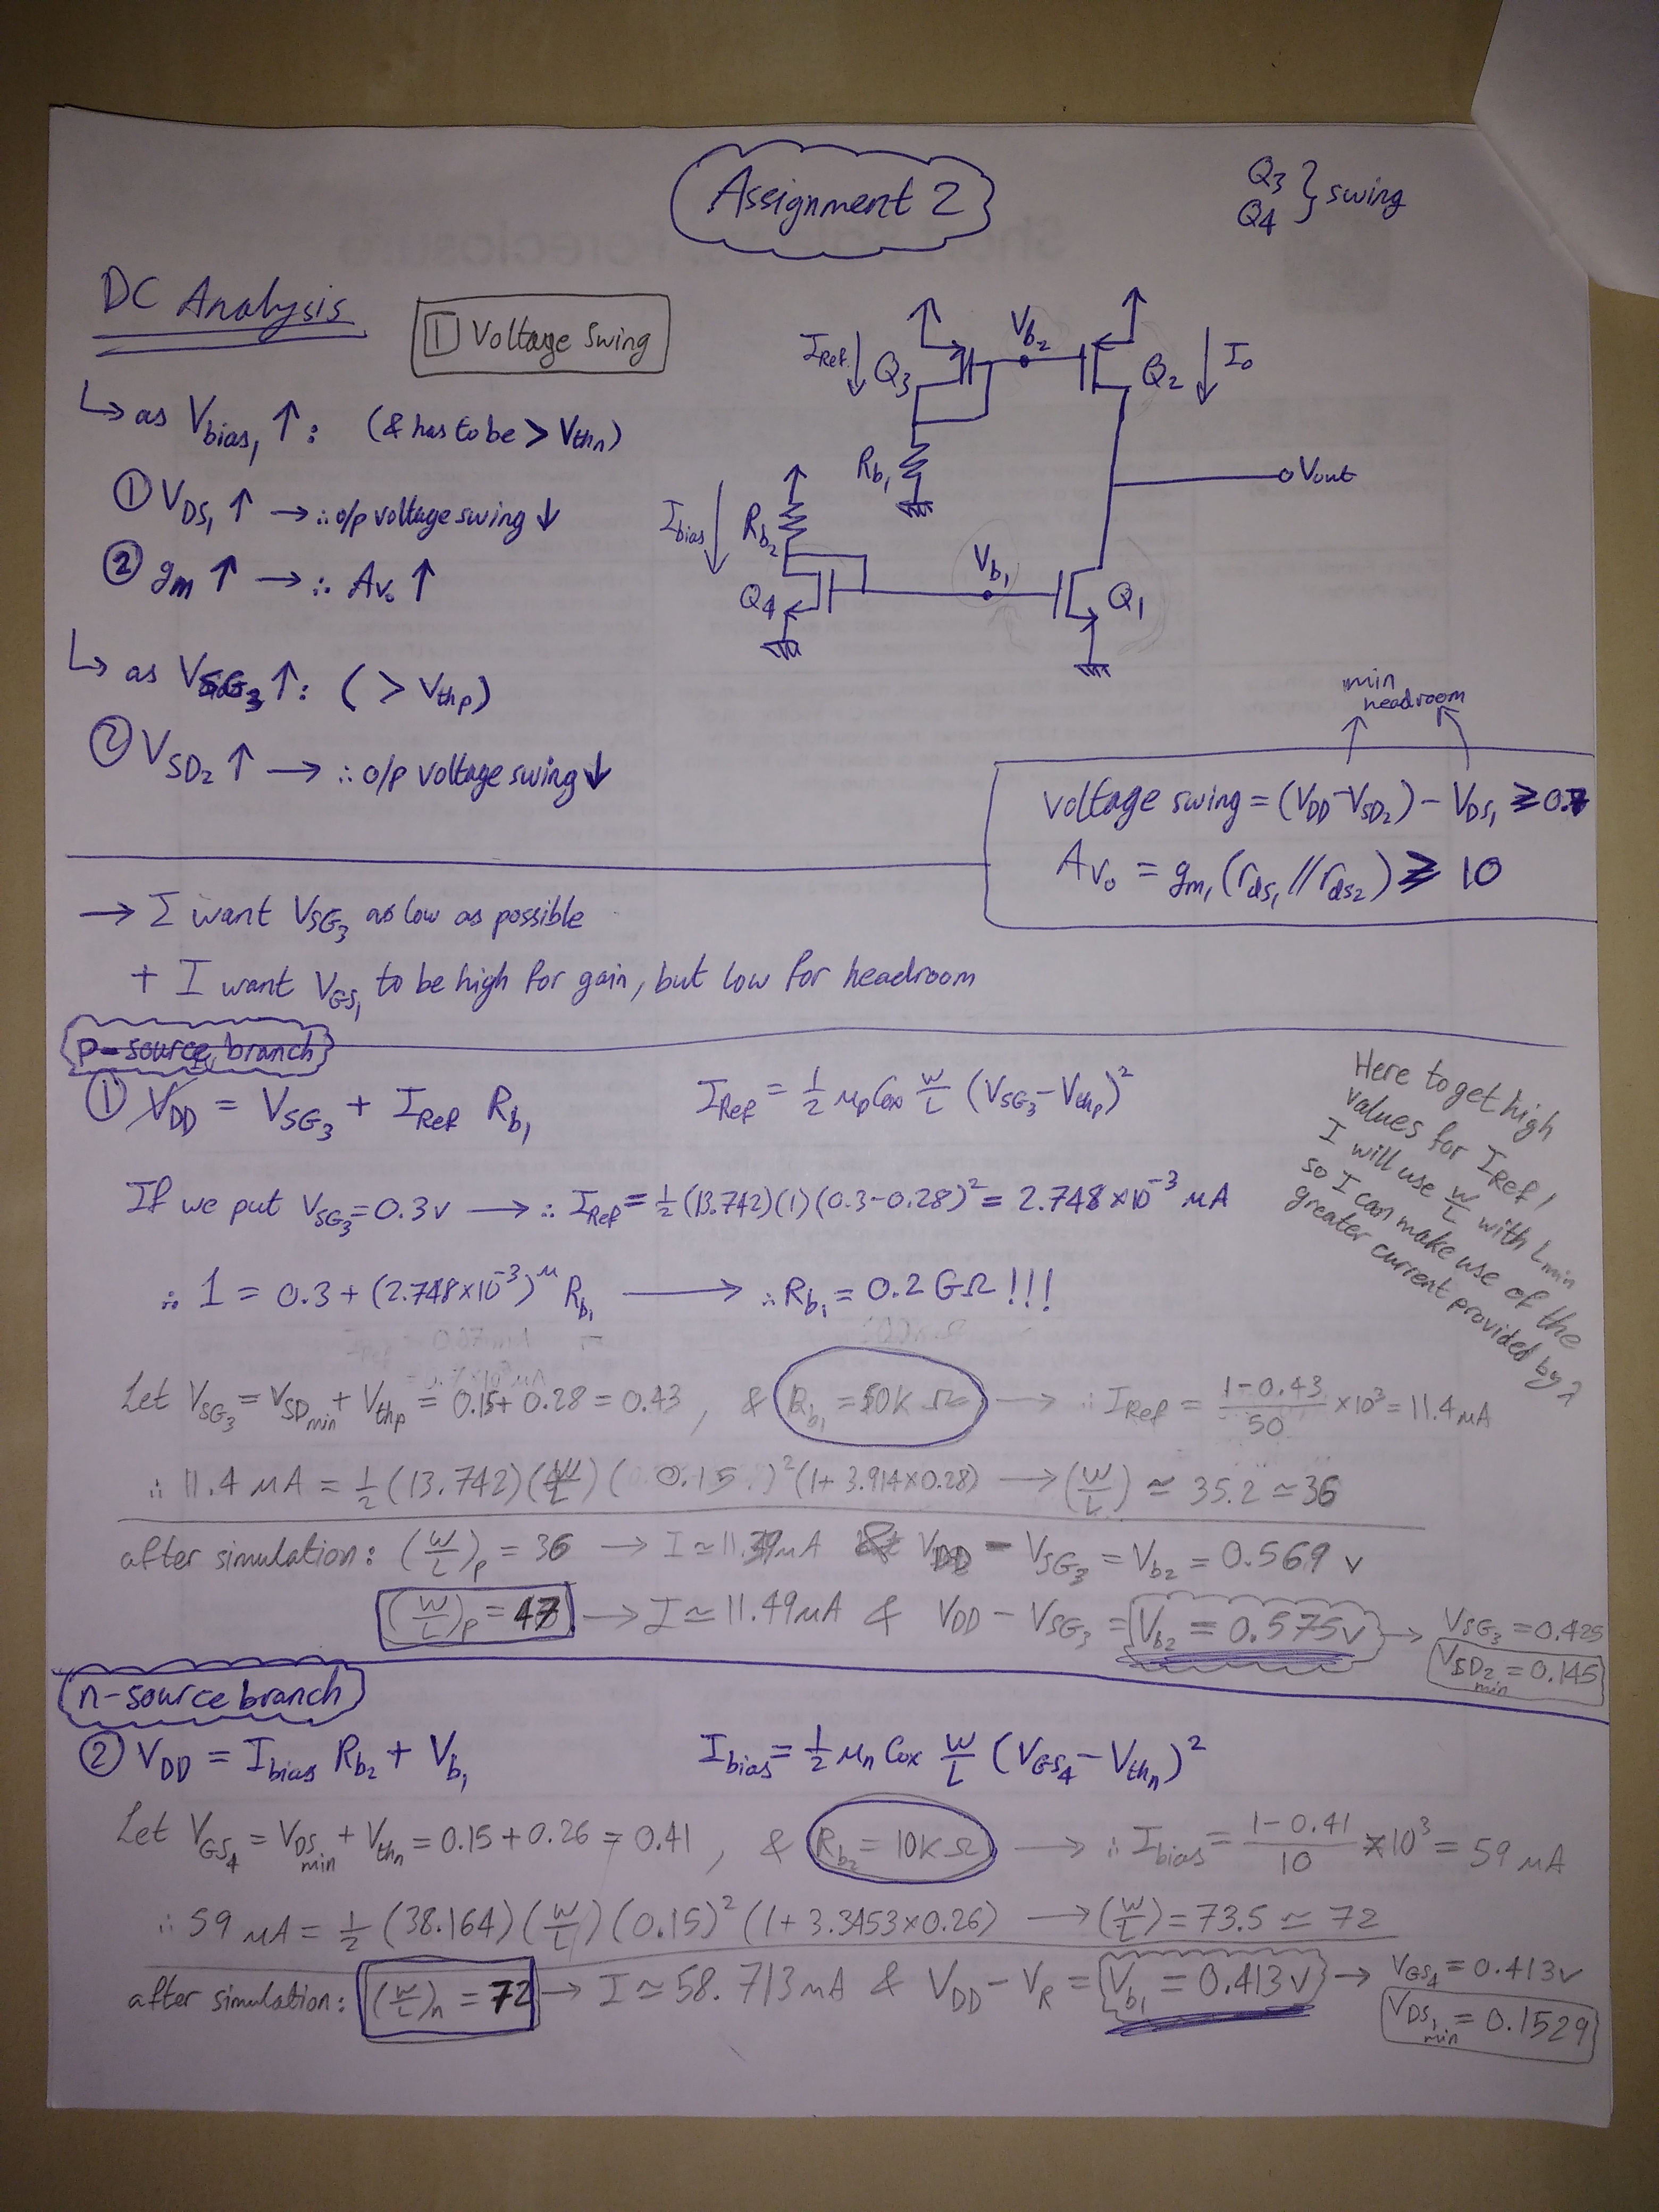 Assignment 2
Q3
Q4 } swing
DC Analysis
① Voltage Swing
IRef ↓ Q3 Vb2 Q2 ↓ Io
↳ as Vbias1 ↑: (& has to be > Vthn)
Rb1
Vout
① VDS1 ↑ → ∴ o/p voltage swing ↓
Ibias ↓ Rb2
② gm ↑ → ∴ Avo ↑
Q4 Vb1 Q1
↳ as VSG3 ↑: (> Vthp)
min headroom
② VSD2 ↑ → ∴ o/p voltage swing ↓
voltage swing = (VDD - VSD2) - VDS1 ≥ 0.7
Avo = gm1 (rds1 // rds2) ≥ 10
→ I want VSG3 as low as possible
+ I want VGS1 to be high for gain, but low for headroom
p-source branch
① VDD = VSG3 + IRef Rb1
IRef = 1/2 μp Cox W/L (VSG3 - Vthp)²
Here to get high
values for IRef,
I will use W/L with Lmin
so I can make use of the
greater current provided by λ
If we put VSG3 = 0.3v → ∴ IRef = 1/2 (13.742)(1)(0.3-0.28)² = 2.748×10⁻³ μA
∴ 1 = 0.3 + (2.748×10⁻³)μ Rb1 → ∴ Rb1 = 0.2 GΩ !!!
Let VSG3 = VSDmin + Vthp = 0.15 + 0.28 = 0.43, & Rb1 = 50K Ω → ∴ IRef = 1-0.43/50 ×10³ = 11.4 μA
∴ 11.4 μA = 1/2 (13.742)(W/L)(0.15)²(1+3.914×0.28) → (W/L) ≃ 35.2 ≃ 36
after simulation: (W/L)p = 36 → I ≃ 11.39μA & VDD - VSG3 = Vb2 = 0.569 v
(W/L)p = 48 → I ≃ 11.49μA & VDD - VSG3 = Vb2 = 0.575v → VSG3 = 0.425
VSD2min = 0.145
n-source branch
② VDD = Ibias Rb2 + Vb1
Ibias = 1/2 μn Cox W/L (VGS4 - Vthn)²
Let VGS4 = VDSmin + Vthn = 0.15 + 0.26 = 0.41, & Rb2 = 10K Ω → ∴ Ibias = 1-0.41/10 ×10³ = 59 μA
∴ 59 μA = 1/2 (38.164)(W/L)(0.15)²(1+3.3453×0.26) → (W/L) = 73.5 ≃ 72
after simulation: (W/L)n = 72 → I ≃ 58.713μA & VDD - VR = Vb1 = 0.413v → VGS4 = 0.413v
VDS1min = 0.1529